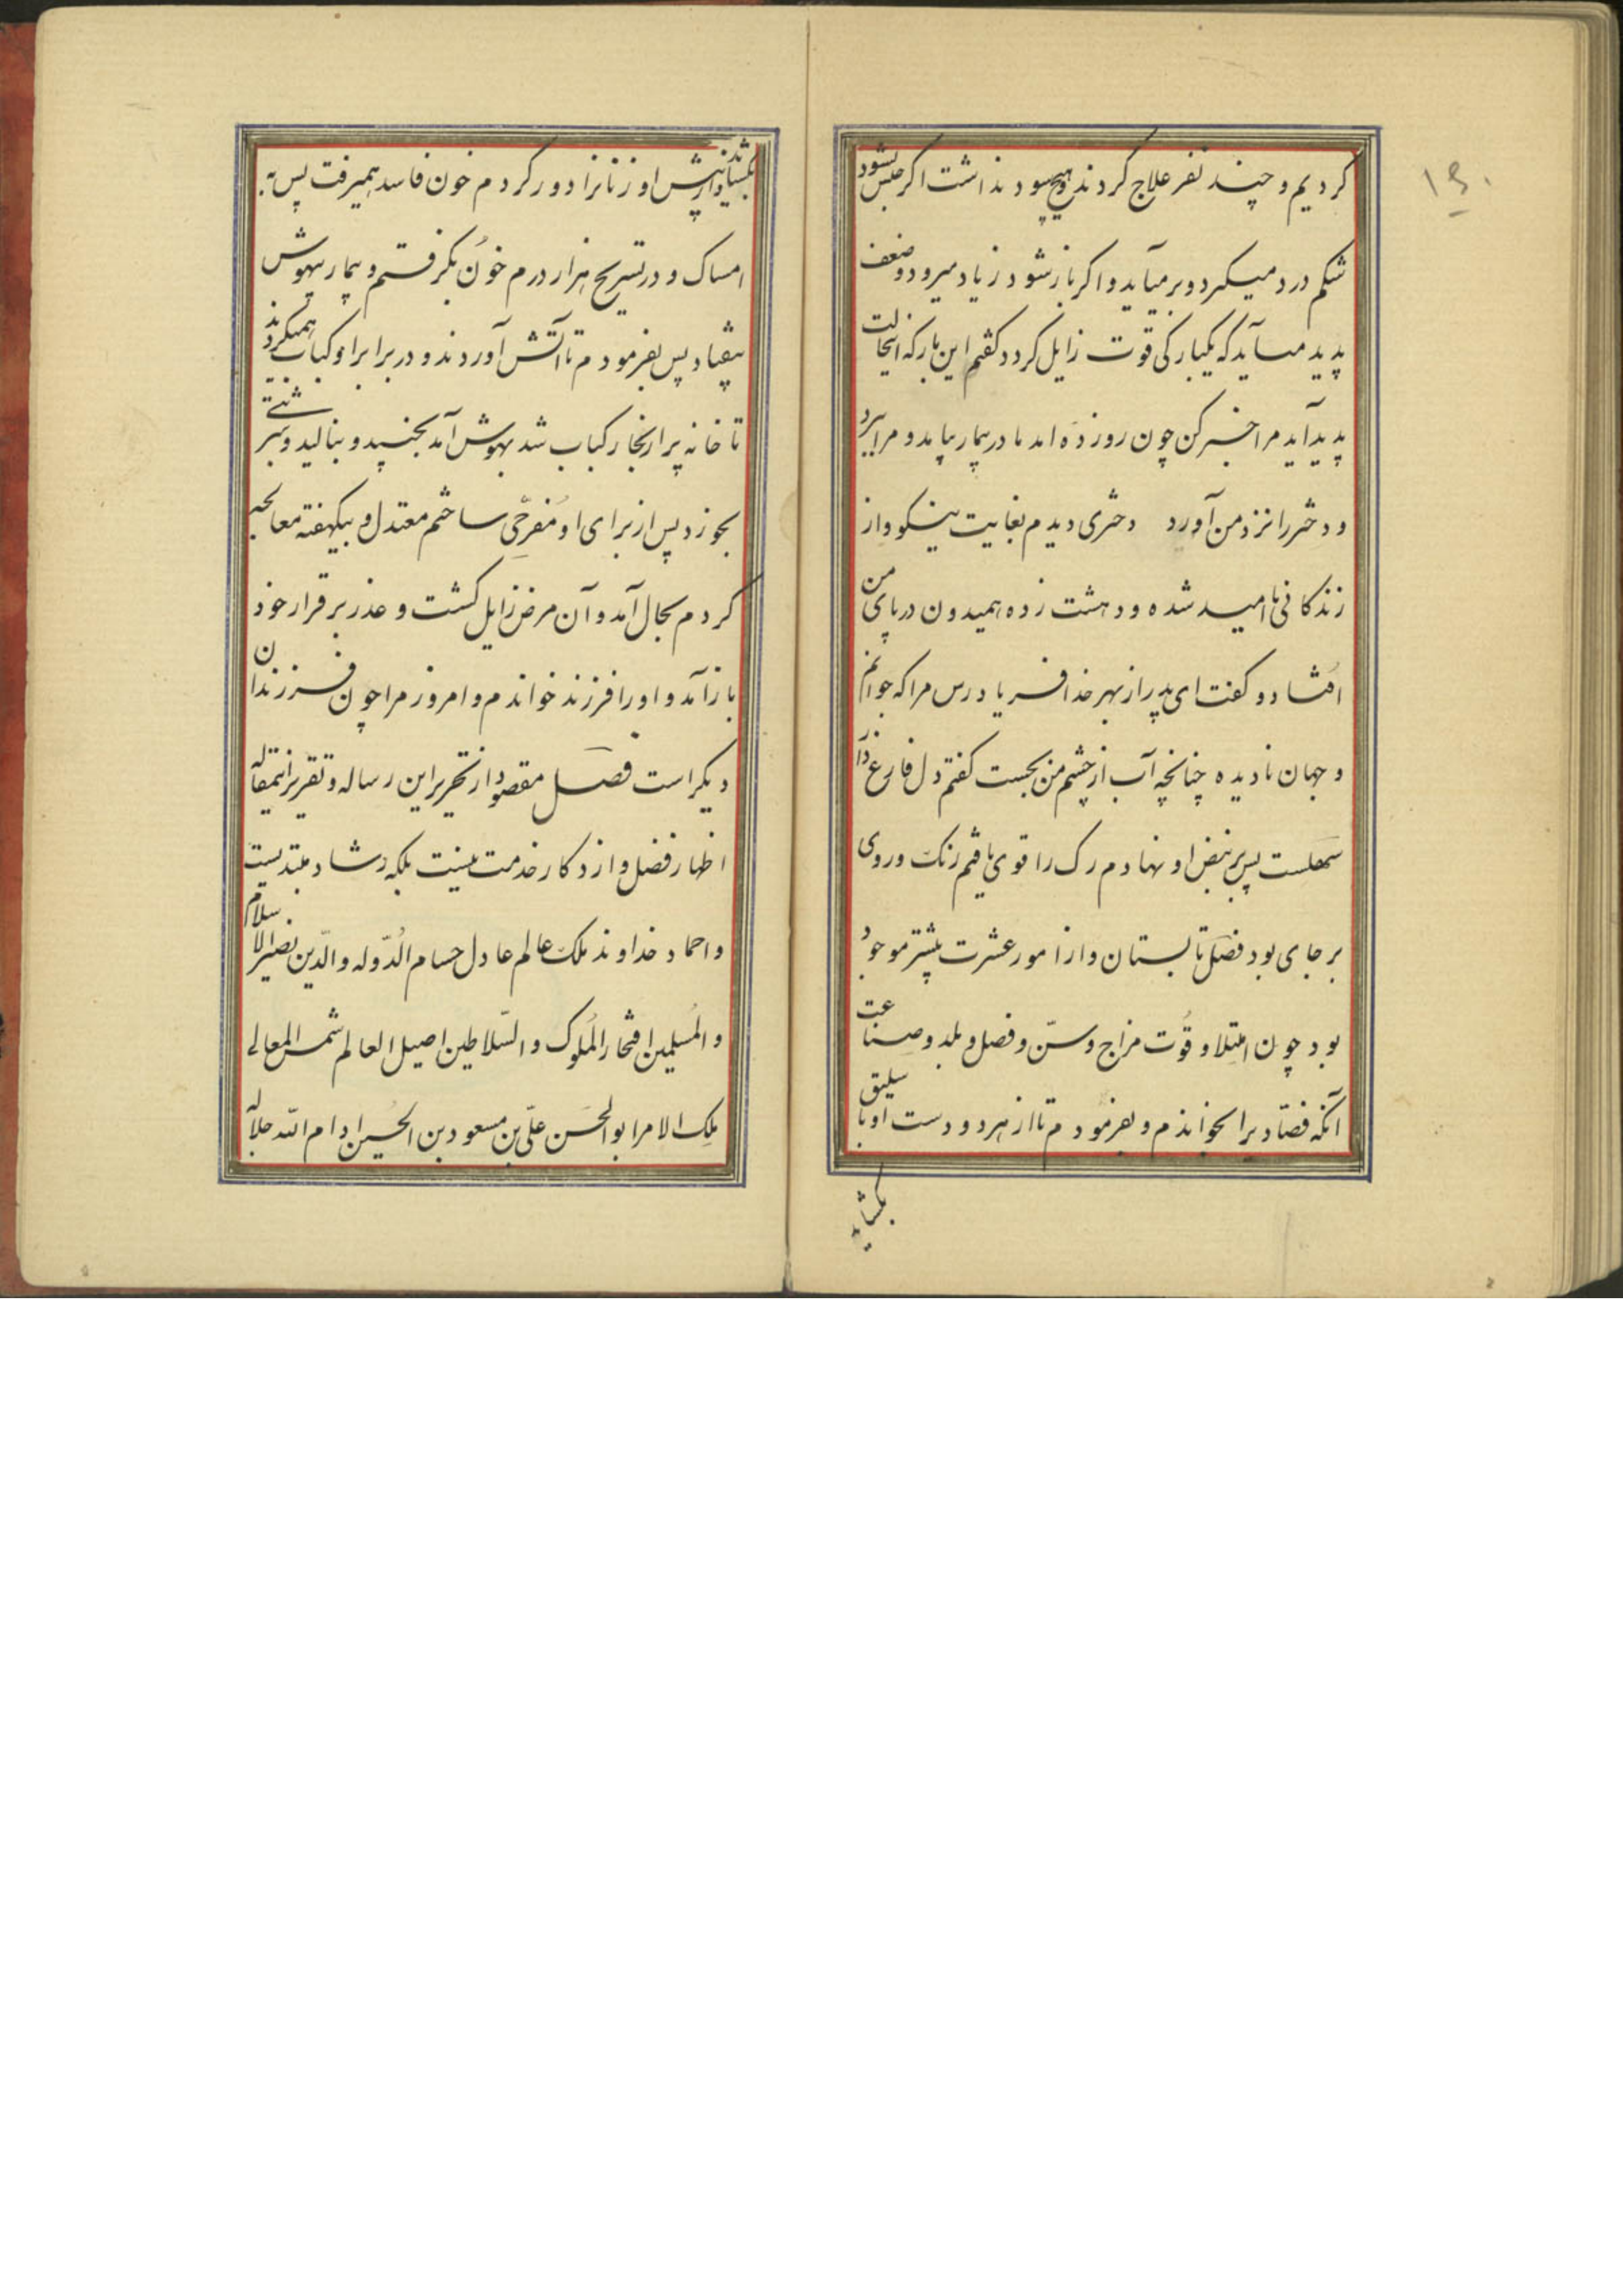 ۱۵۰
کردیم و چند نفر علاج کردند و هیچ سود نداشت اکر حبس بشود
شکم درد میکیرد و بر میآید و اکر باز شود زیاد میرود و ضعف
پدید میآید که یکبارکی قوت زایل کردد کفتم این بار که اینحالت
پدید آید مرا خبر کن چون روز ده امد مادر بیمار بیامد و مرا ببرد
و دختر را نزد من آورد دختری دیدم بغایت نیکو و از
زندکانی نا امید شده و دهشت زده همیدون در پای من
افتاد و کفت ای پدر از بهر خدا فریاد رس مرا که جوانم
و جهان نادیده چنانچه آب از چشم من بجست کفتم دل فارغ دار
سهلست پس بر نبض او نهادم رک را قوی یافتم رنک و روی
بر جای بود فصل تابستان و از امور عشرت بیشتر موجود
بود چون امتلا و قوت مزاج و سن و فصل و بلد و صناعت
آنکه فصاد یرا بخواندم و بفرمودم تا از هر دو دست او باسلیق
بکشاید
بکشادند و از پیش او زنانرا دور کردم خون فاسد همیرفت پس به
امساک و در تسریح هزار درم خون بکرفتم و بیمار بیهوش
بیفتاد پس بفرمودم تا آتش آوردند و در برابر او کباب همیکردند
تا خانه پر از بخار کباب شد بهوش آمد بجنبید و بنالید و شربتی
بخورد پس از برای او مفرحی ساختم معتدل و بیکهفته معالجه
کردم بحال آمد و آن مرض زایل کشت و عذر بر قرار خود
باز آمد و او را فرزند خواندم و امروز مرا چون فرزندان
دیکر است فصل مقصود از تحریر این رساله و تقریر اینمقاله
اظهار فضل و اذکار خدمت نیست بلکه رشاد مبتدیست
و احماد خداوند ملک عالم عادل حسام الدوله والدین نصیر الاسلام
والمسلمین افتخار الملوک والسلاطین اصیل العالم شمس المعالی
ملک الامرا بو الحسن علی بن مسعود بن الحسین ادام الله جلاله